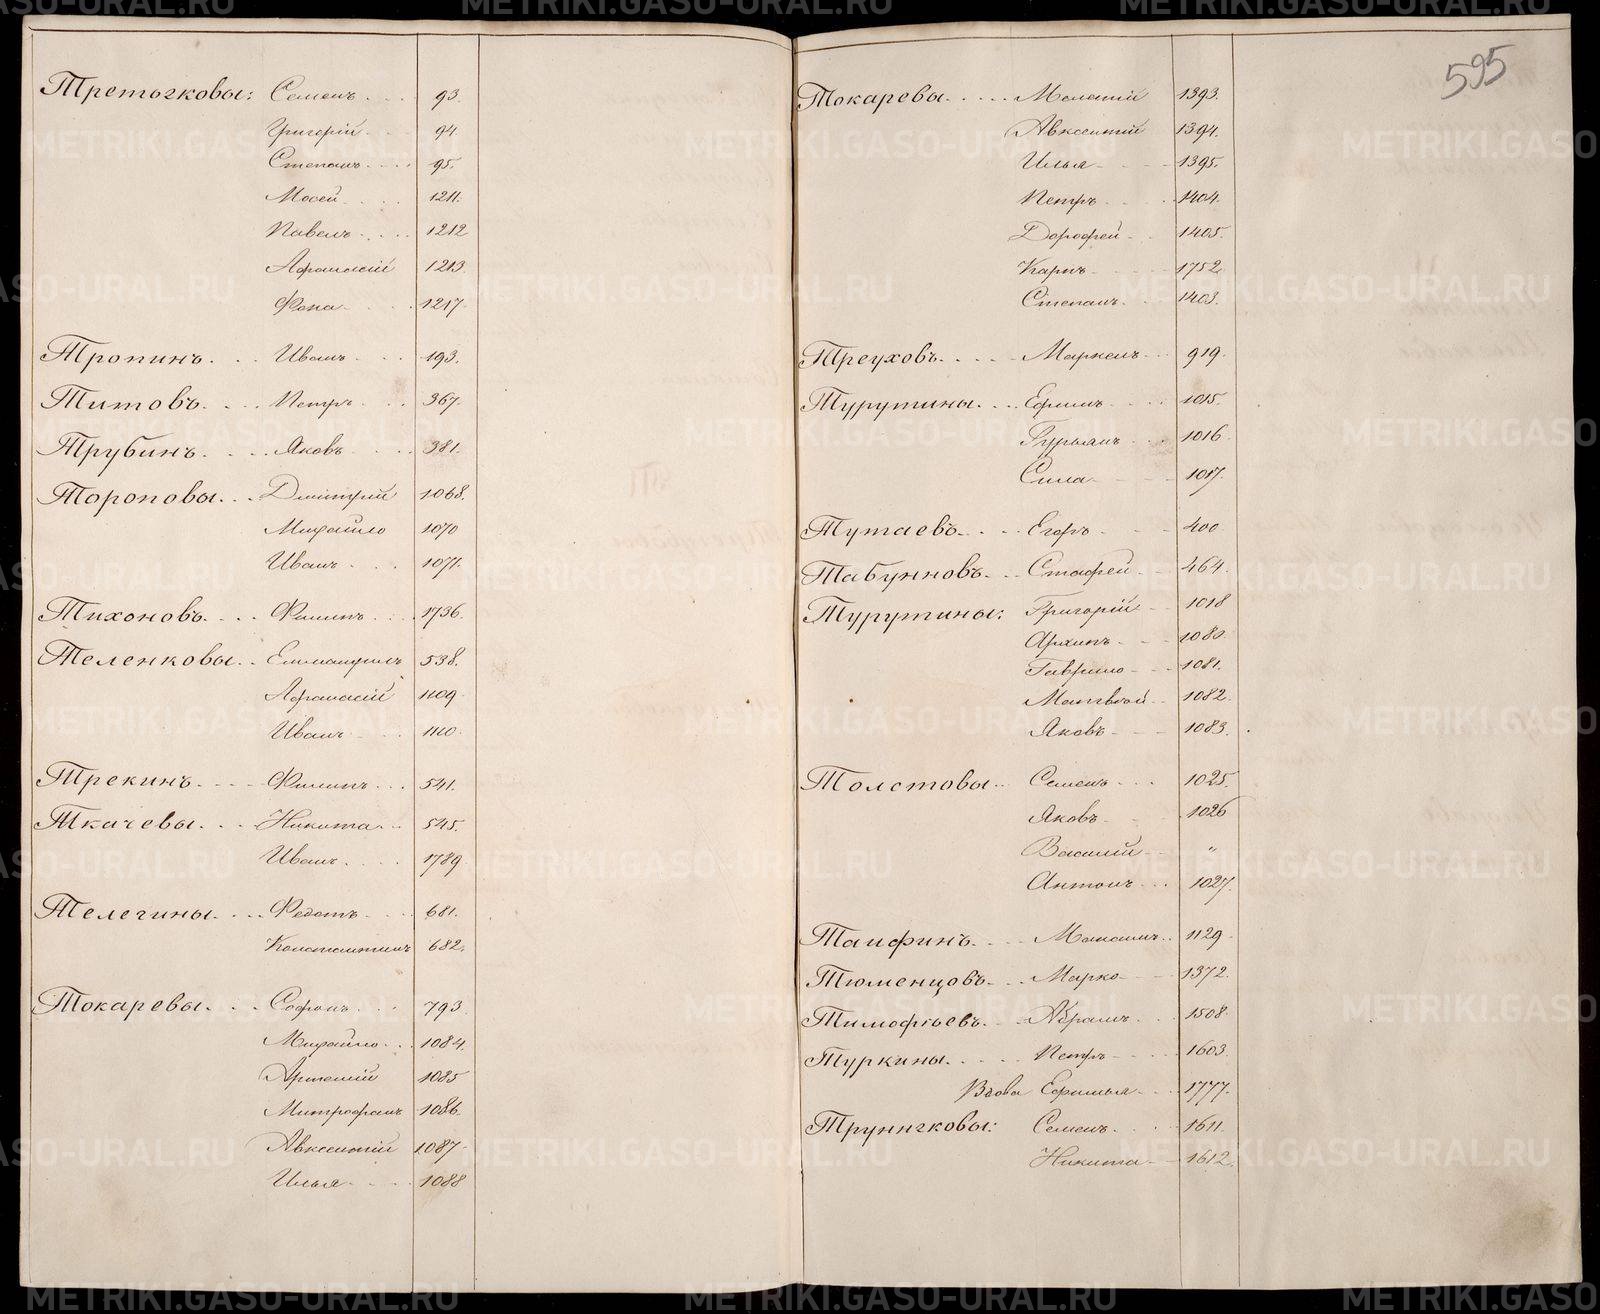 595
Третьяковы: Семенъ 93.
Григорій 94.
Степанъ 95.
Мосей 1211.
Павелъ 1212
Афанасій 1213.
Фока 1217.
Тропинъ Иванъ 193.
Титовъ Петръ 367.
Трубинъ Яковъ 381.
Тороповы Дмитрій 1068.
Михайло 1070
Иванъ 1071.
Тихоновъ Филипъ 1736.
Теленковы Еммануилъ 538.
Афанасій 1109.
Иванъ 1110.
Трекинъ Филипъ 541.
Ткачевы Никита 545.
Иванъ 1789.
Телегины Федотъ 681.
Константинъ 682.
Токаревы Софонъ 793
Михайло 1084.
Артемій 1085
Митрофанъ 1086.
Авксентій 1087.
Илья 1088
Токаревы Мелетій 1393.
Авксентій 1394.
Илья 1395.
Петръ 1404.
Дорофей 1405.
Карпъ 1752.
Степанъ 1403.
Треуховъ Маркелъ 919.
Турутины Ефимъ 1015.
Гурьянъ 1016.
Сила 1017.
Тутаевъ Егоръ 400.
Табунновъ Стафей 464.
Турутины: Григорій 1018
Архипъ 1080.
Гаврило 1081.
Матвѣй 1082.
Яковъ 1083.
Толстовы Семенъ 1025.
Яковъ 1026
Василій "
Антонъ 1027.
Танфинъ 1129.
Тюменцовъ Марко 1372.
Тимофѣевъ Абрамъ 1508.
Туркины Петръ 1603.
Вдова Ефимья 1777.
Трунигковы: Семенъ 1611.
Никита 1612.
METRIKI.GASO-URAL.RU